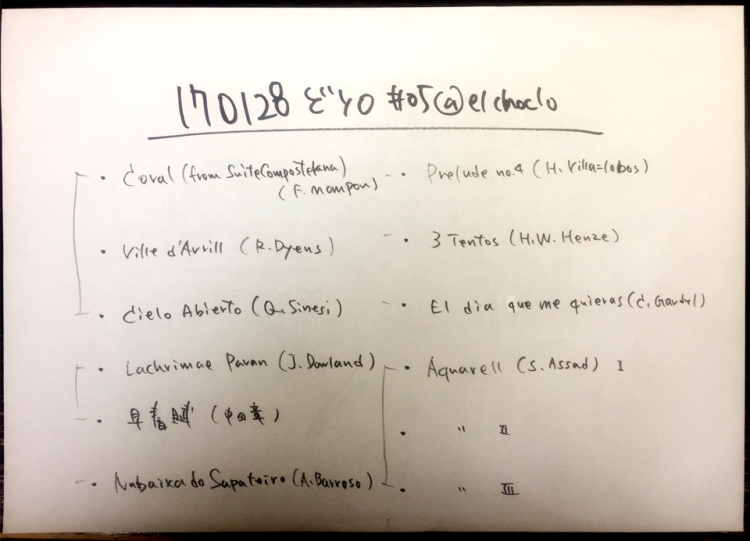 170128 ビソロ #05@el choclo
・Coral (from Suite Compostelana)
(F. Mompou)
・Ville d'Avrill (R. Dyens)
・Cielo Abierto (Q. Sinesi)
・Lachrimae Pavan (J. Dowland)
・早春賦 (中田章)
・Nabaixa do Sapateiro (A. Barroso)
・Prelude no.4 (H. Villa=lobos)
・3 Tentos (H.W. Henze)
・El dia que me quieras (C. Gardel)
・Aquarell (S. Assad) I
・ 〃 II
・ 〃 III